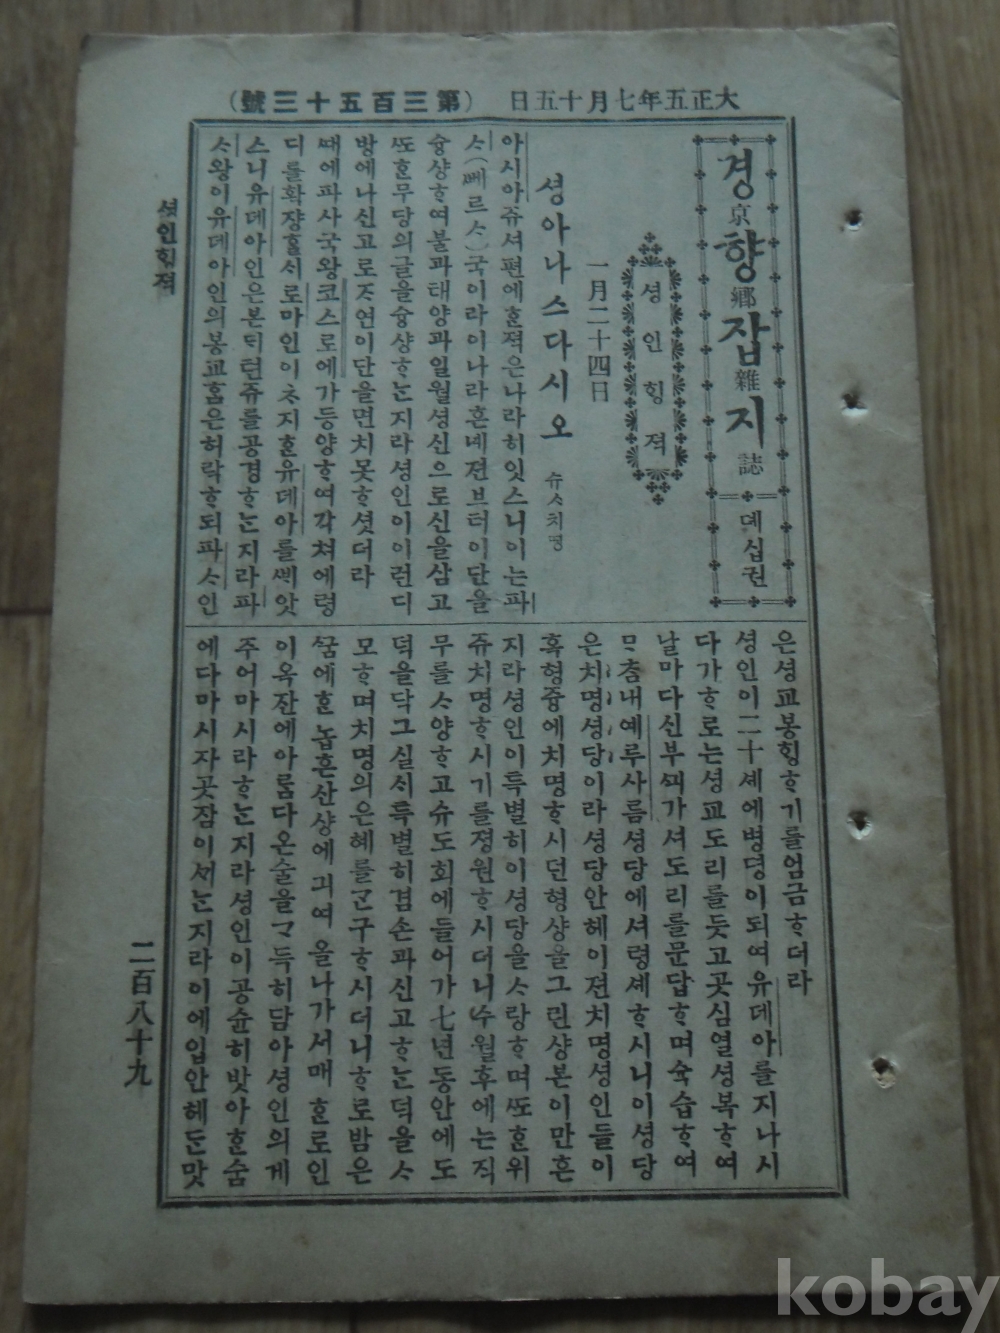 大正五年七月十五日 (第三百五十三號)
경京향鄕잡雜지誌 뎨십권
셩인ᄒᆡᆼ젹
一月二十四日
셩아나스다시오 슈ᄉᆞ치명
아시아쥬셔편에ᄒᆞᆫ젹은나라히잇스니이는파
ᄉᆞ(뻬르ᄉᆞ)국이라이나라흔녜젼브터이단을
슝샹ᄒᆞ여불과태양과일월셩신으로신을삼고
ᄯᅩᄒᆞᆫ무당의글을슝샹ᄒᆞᄂᆞᆫ지라셩인이이런디
방에나신고로ᄌᆞ연이단을면치못ᄒᆞ셧더라
때에파사국왕코스로에가등양ᄒᆞ여각쳐에령
디를확쟝ᄒᆞᆯᄉᆡ로마인이ᄎᆞ지ᄒᆞᆫ유데아를ᄲᅢ앗
스니유데아인은본ᄃᆡ텬쥬를공경ᄒᆞᄂᆞᆫ지라파
ᄉᆞ왕이유데아인의봉교ᄒᆞᆷ은허락ᄒᆞ되파ᄉᆞ인
은셩교봉ᄒᆡᆼᄒᆞ기를엄금ᄒᆞ더라
셩인이二十셰에병뎡이되여유데아를지나시
다가ᄒᆞ로는셩교도리를듯고곳심열셩복ᄒᆞ여
날마다신부ᄭᅴ가셔도리를문답ᄒᆞ며슉습ᄒᆞ여
ᄆᆞᄎᆞᆷ내예루사름셩당에셔령셰ᄒᆞ시니이셩당
은치명셩당이라셩당안헤이젼치명셩인들이
혹형즁에치명ᄒᆞ시던형샹을그린샹본이만흔
지라셩인이특별히이셩당을ᄉᆞ랑ᄒᆞ며ᄯᅩᄒᆞᆫ위
쥬치명ᄒᆞ시기를졍원ᄒᆞ시더니수월후에는직
무를ᄉᆞ양ᄒᆞ고슈도회에들어가七년동안에도
덕을닥그실ᄉᆡ특별히겸손과신고ᄒᆞᄂᆞᆫ덕을ᄉᆞ
모ᄒᆞ며치명의은혜를군구ᄒᆞ시더니ᄒᆞ로밤은
ᄭᅮᆷ에ᄒᆞᆫ놉흔산샹에긔여올나가셔매ᄒᆞᆫ로인
이옥잔에아름다온술을ᄀᆞ득히담아셩인의게
주어마시라ᄒᆞᄂᆞᆫ지라셩인이공슌히밧아ᄒᆞᆫ숨
에다마시자곳잠이ᄭᆡᄂᆞᆫ지라이에입안헤둔맛
셩인ᄒᆡᆼ젹
二百八十九
kobay